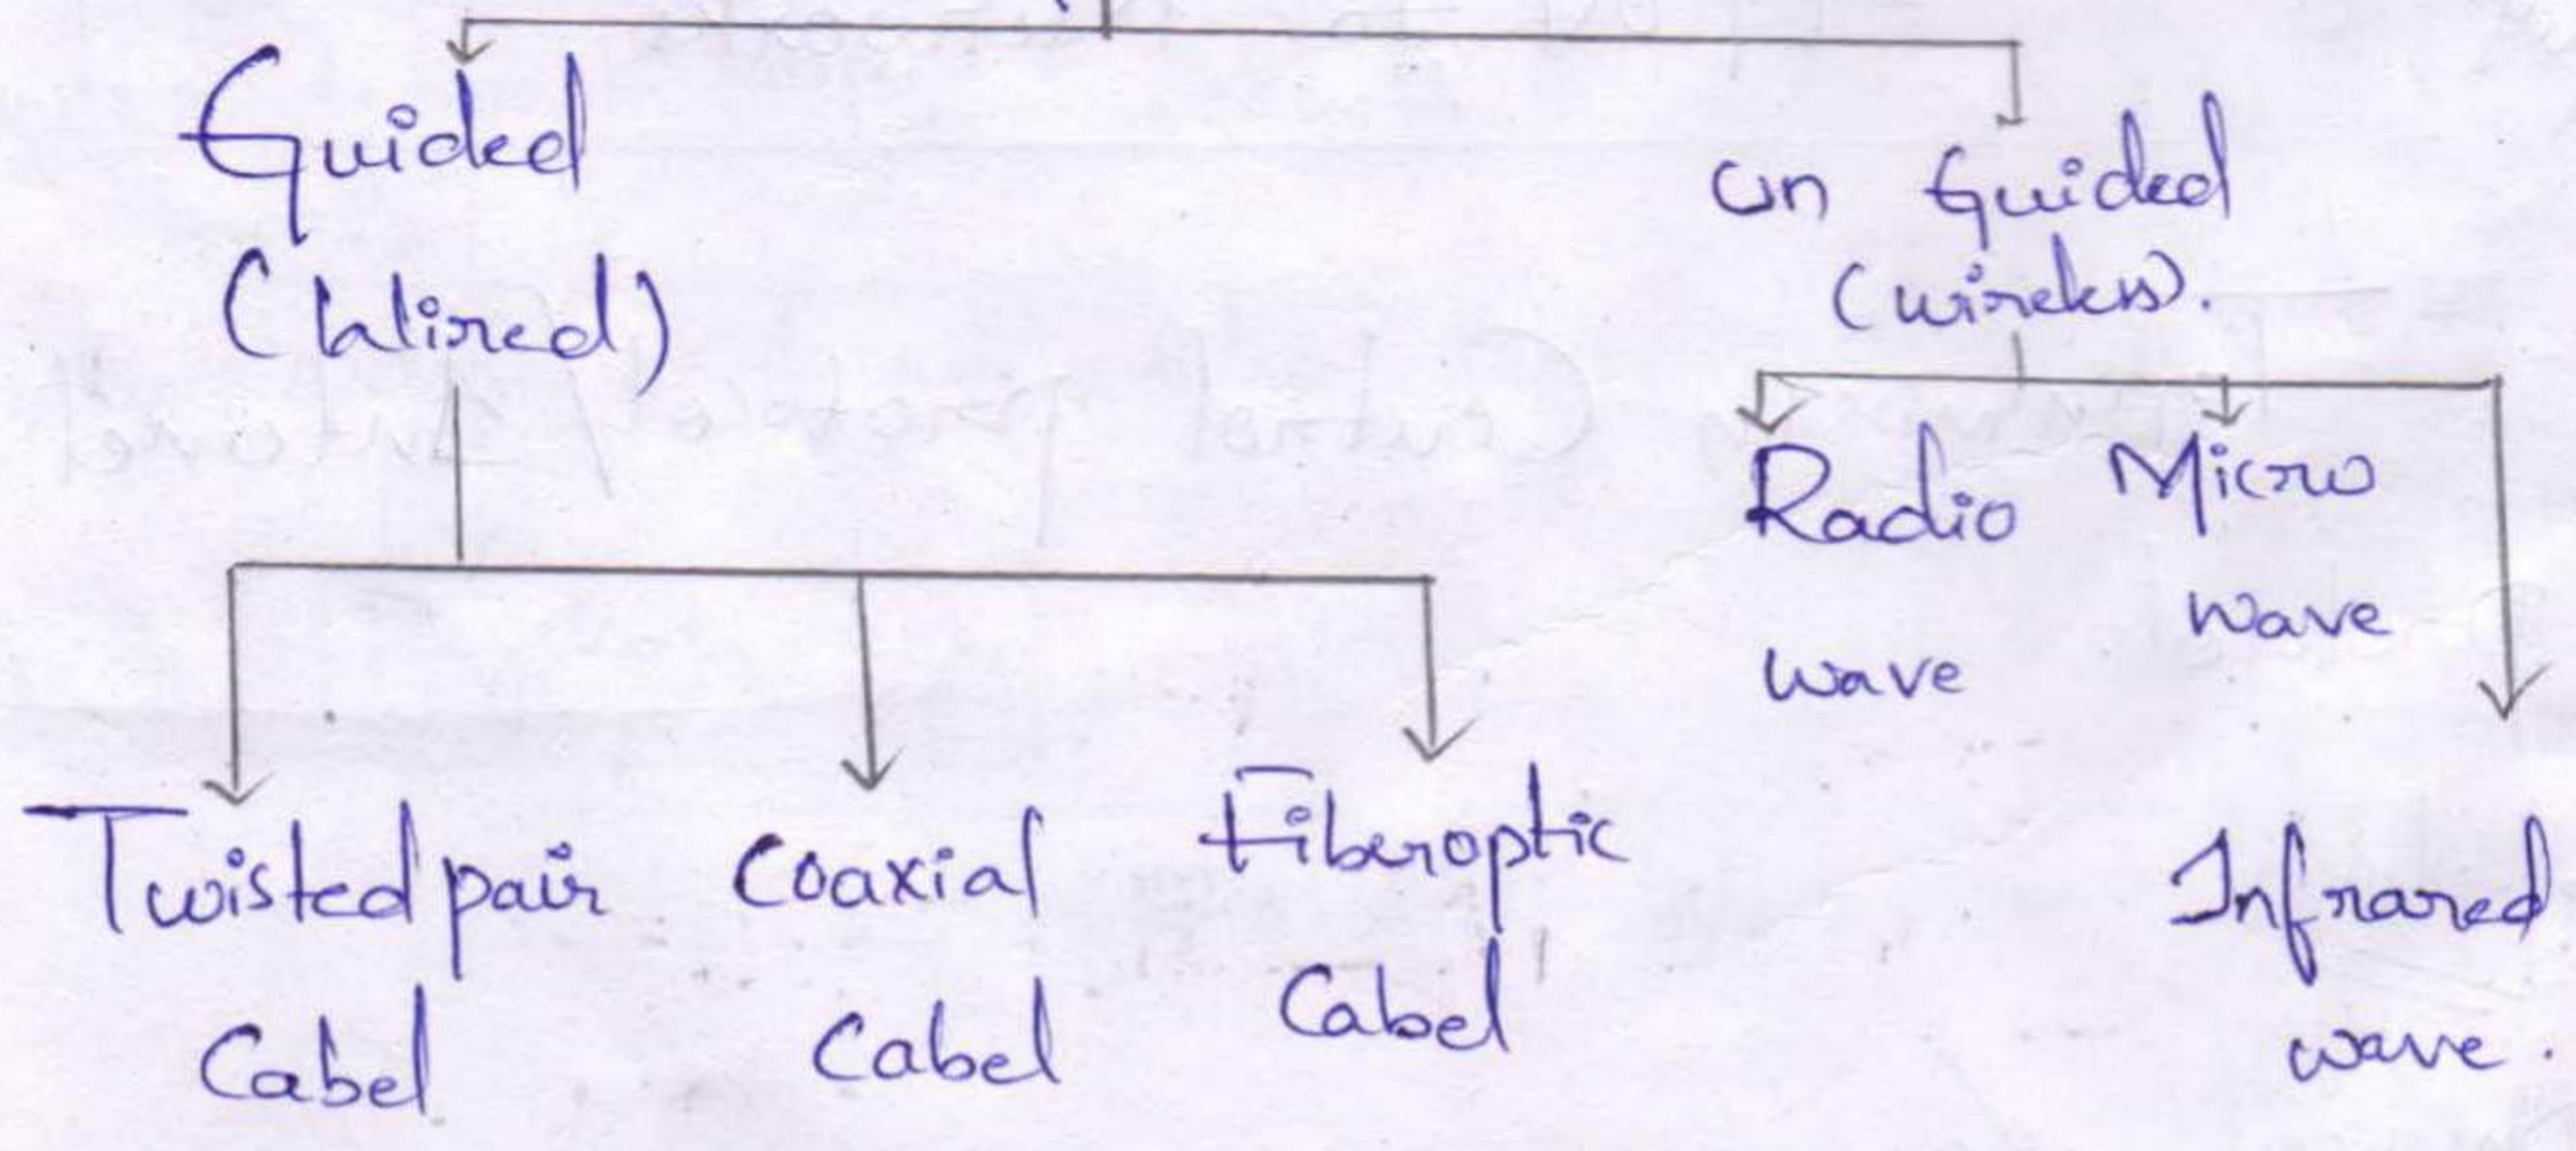 Guided
(Wired)
un Guided
(wireless).
Radio
wave
Micro
wave
Infrared
wave.
Twisted pair
Cabel
Coaxial
Cabel
Fiberoptic
Cabel